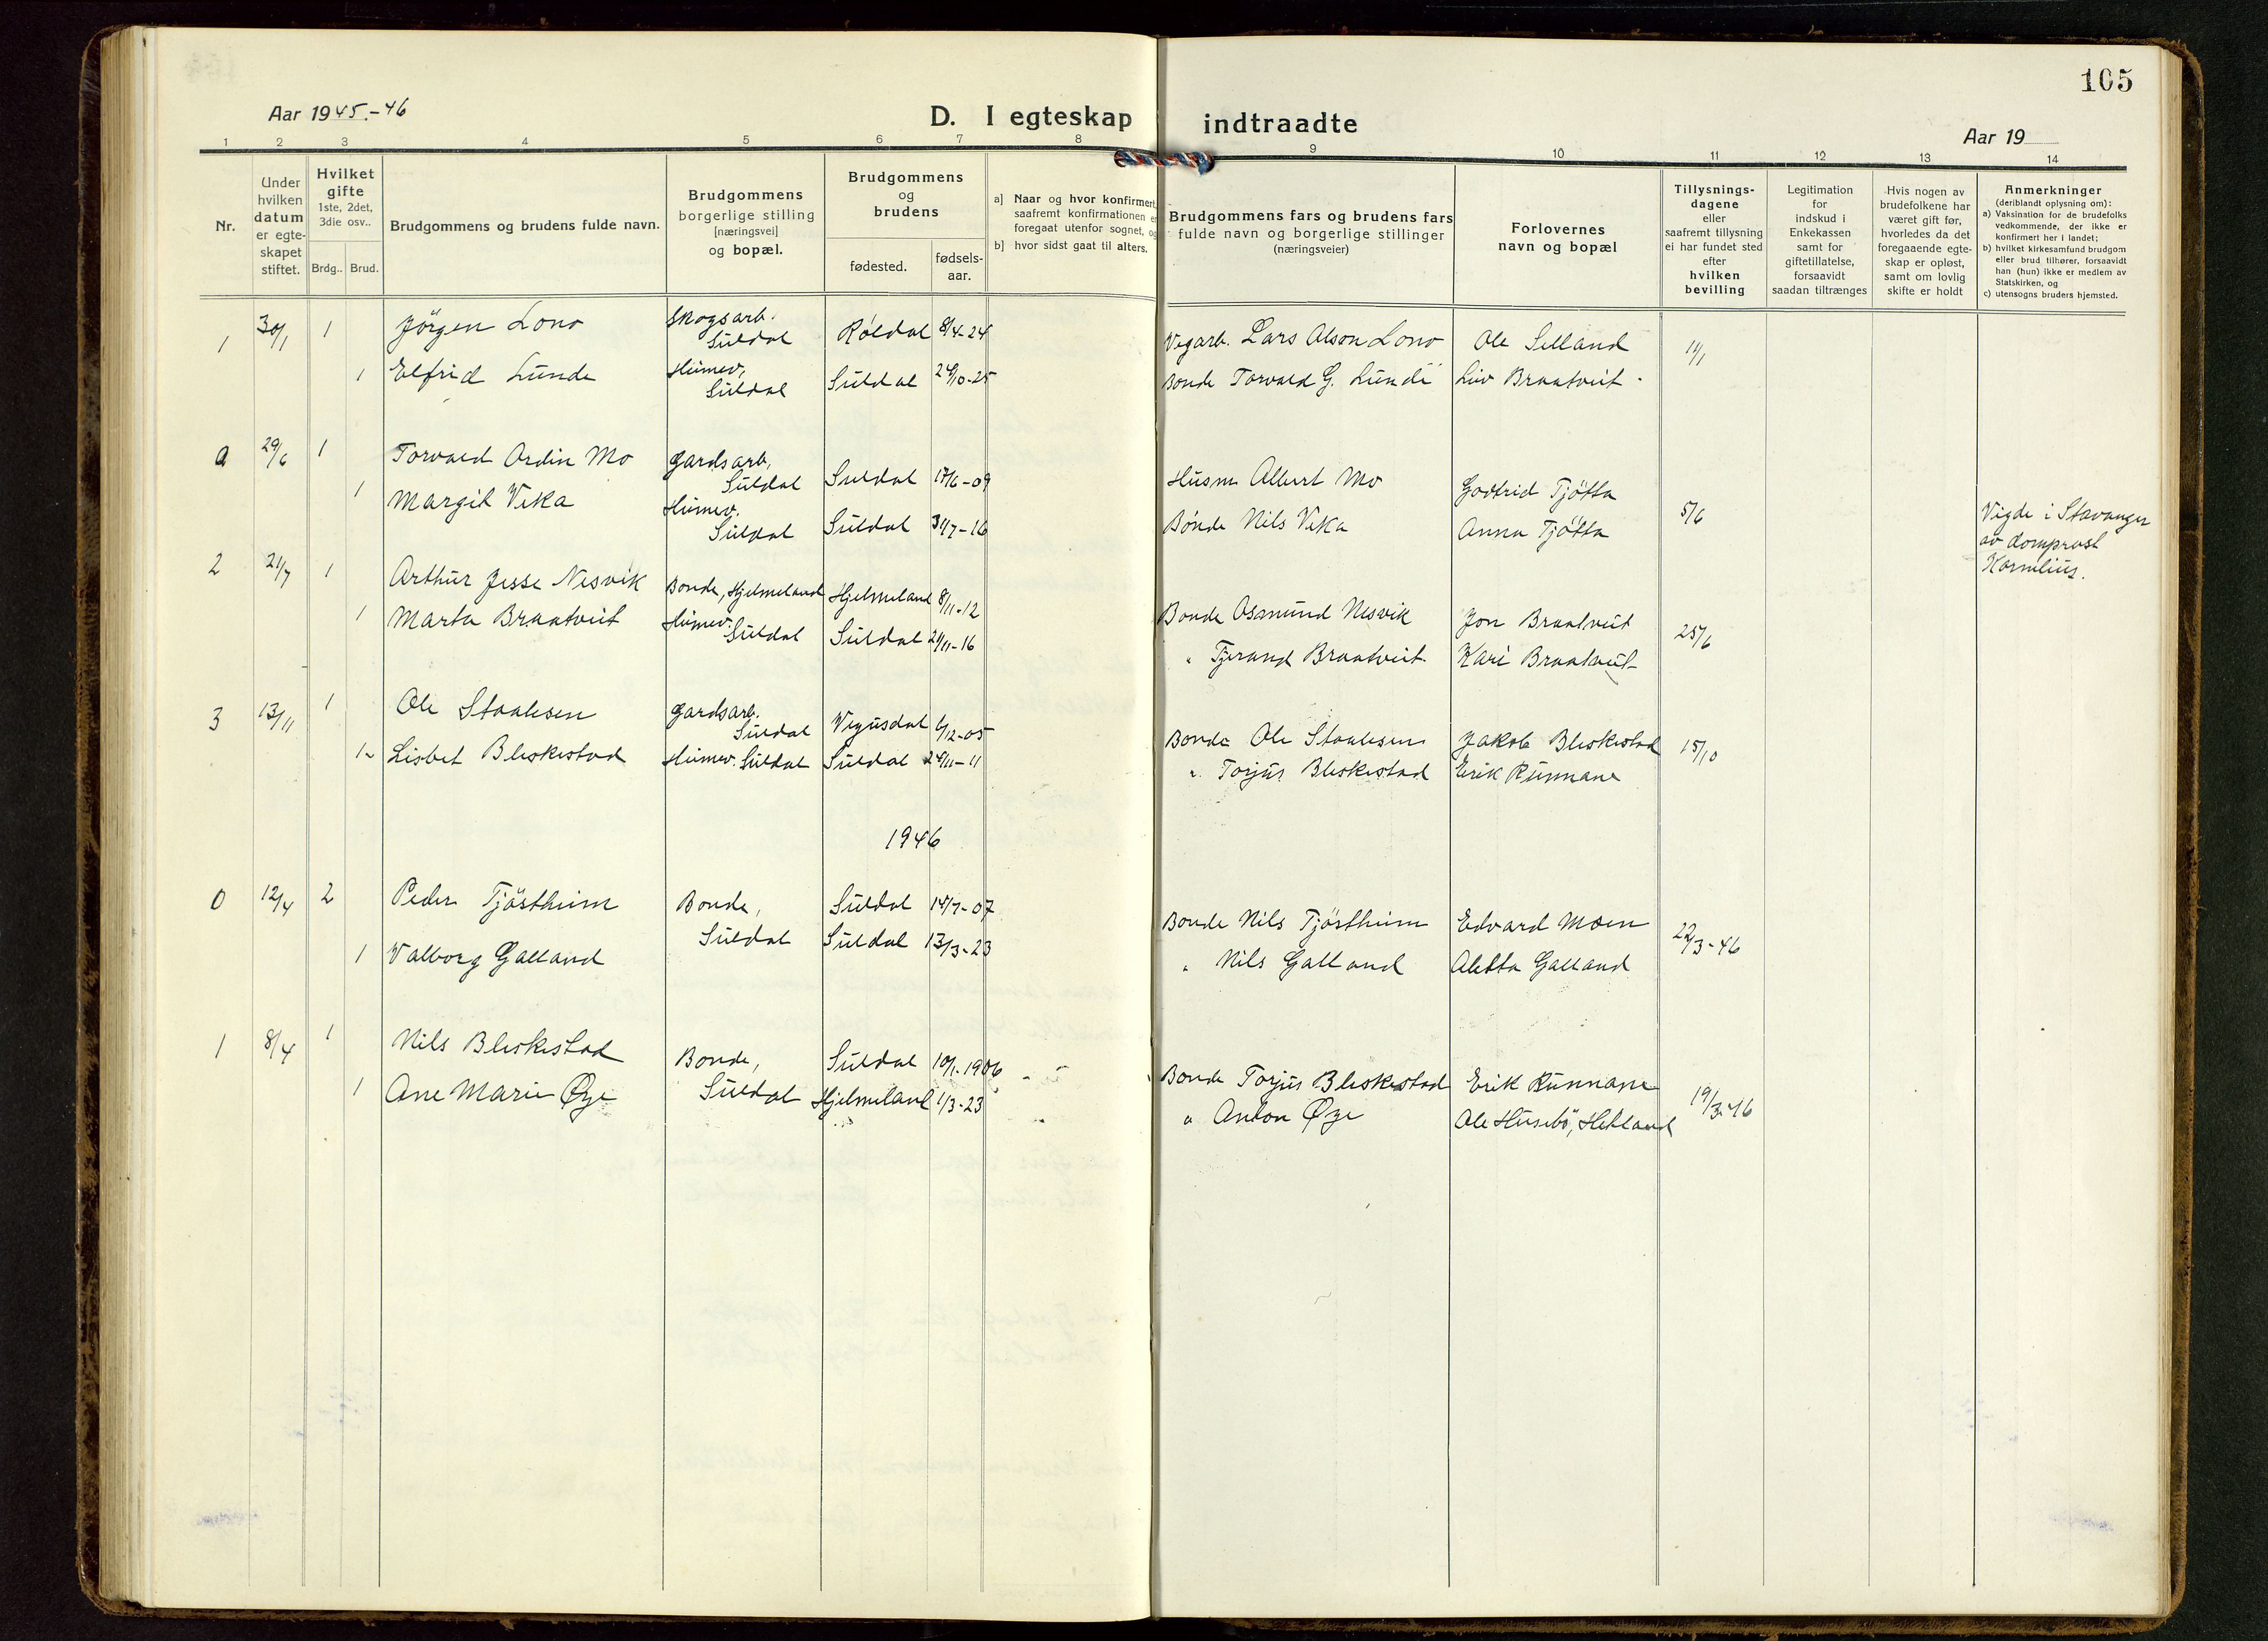 105
Aar 1945.-46
D. I egteskap indtraadte
Aar 19
1 2 3 4 5 6 7 8 9 10 11 12 13 14
Nr.
Under hvilken datum er egte-skapet stiftet.
Hvilket gifte 1ste, 2det, 3die osv..
Brdg.. Brud.
Brudgommens og brudens fulde navn.
Brudgommens borgerlige stilling [næringsvei] og bopæl.
Brudgommens og brudens
fødested. fødsels-aar.
a] Naar og hvor konfirmert, saafremt konfirmationen er foregaat utenfor sognet, og
b] hvor sidst gaat til alters.
Brudgommens fars og brudens fars fulde navn og borgerlige stillinger (næringsveier)
Forlovernes navn og bopæl
Tillysnings-dagene eller saafremt tillysning ei har fundet sted efter hvilken bevilling
Legitimation for indskud i Enkekassen samt for giftetillatelse, forsaavidt saadan tiltrænges
Hvis nogen av brudefolkene har været gift før, hvorledes da det foregaaende egte-skap er opløst, samt om lovlig skifte er holdt
Anmerkninger (deriblandt oplysning om):
a) Vaksination for de brudefolks vedkommende, der ikke er konfirmert her i landet;
b) hvilket kirkesamfund brudgom eller brud tilhører, forsaavidt han (hun) ikke er medlem av Statskirken, og
c) utensogns bruders hjemsted.
1 30/1 1 Jörgen Lono Skogsarb. Suldal Röldal 8/4-24 Vegarb. Lars Olson Lono Ole Selland 11/1
1 Elfrid Lunde Húsmev, Suldal Suldal 24/10-25 Bonde Torvald G. Lunde Liv Braatveit.
2 29/6 1 Torvald Ordin Mo gardsarb, Suldal Suldal 17/6-09 Husm Albert Mo Godtfrid Tjötta 5/6
1 Margit Veka Suldal Suldal 31/7-16 Bonde Nils Veka Anna Tjötta
Vigde i Stavanger
av domprost
Kornelius.
2 21/7 1 Arthur Jesse Nesvik Bonde, Hjelmeland Hjelmeland 8/11-12 Bonde Osmund Nesvik Jon Braatveit 25/6
1 Marta Braatveit Suldal Suldal 21/11-16 " Tjerand Braatveit. Kari Braatveit
3 13/11 1 Ole Staalesen gardsarb. Suldal Vegusdal 6/12-05 Bonde Ole Staalesen Jakob Bleskestad 15/10
1 Lisbet Bleskestad Suldal Suldal 24/11-11 " Torjus Bleskestad Erik Runnane
1946
0 12/4 2 Peder Tjöstheim Bonde, Suldal Suldal 14/7-07 Bonde Nils Tjöstheim Edvard Moen 22/3-46
1 Valborg Galland Suldal 13/3-23 " Nils Galland Aletta Galland
1 8/4 1 Nils Bleskestad Bonde, Suldal Suldal 10/1-1906 Bonde Torjus Bleskestad Erik Runnane 19/3-46
1 Ane Marie Øye Hjelmeland 1/3-23 " Anton Øye Ole Husebö, Hetland